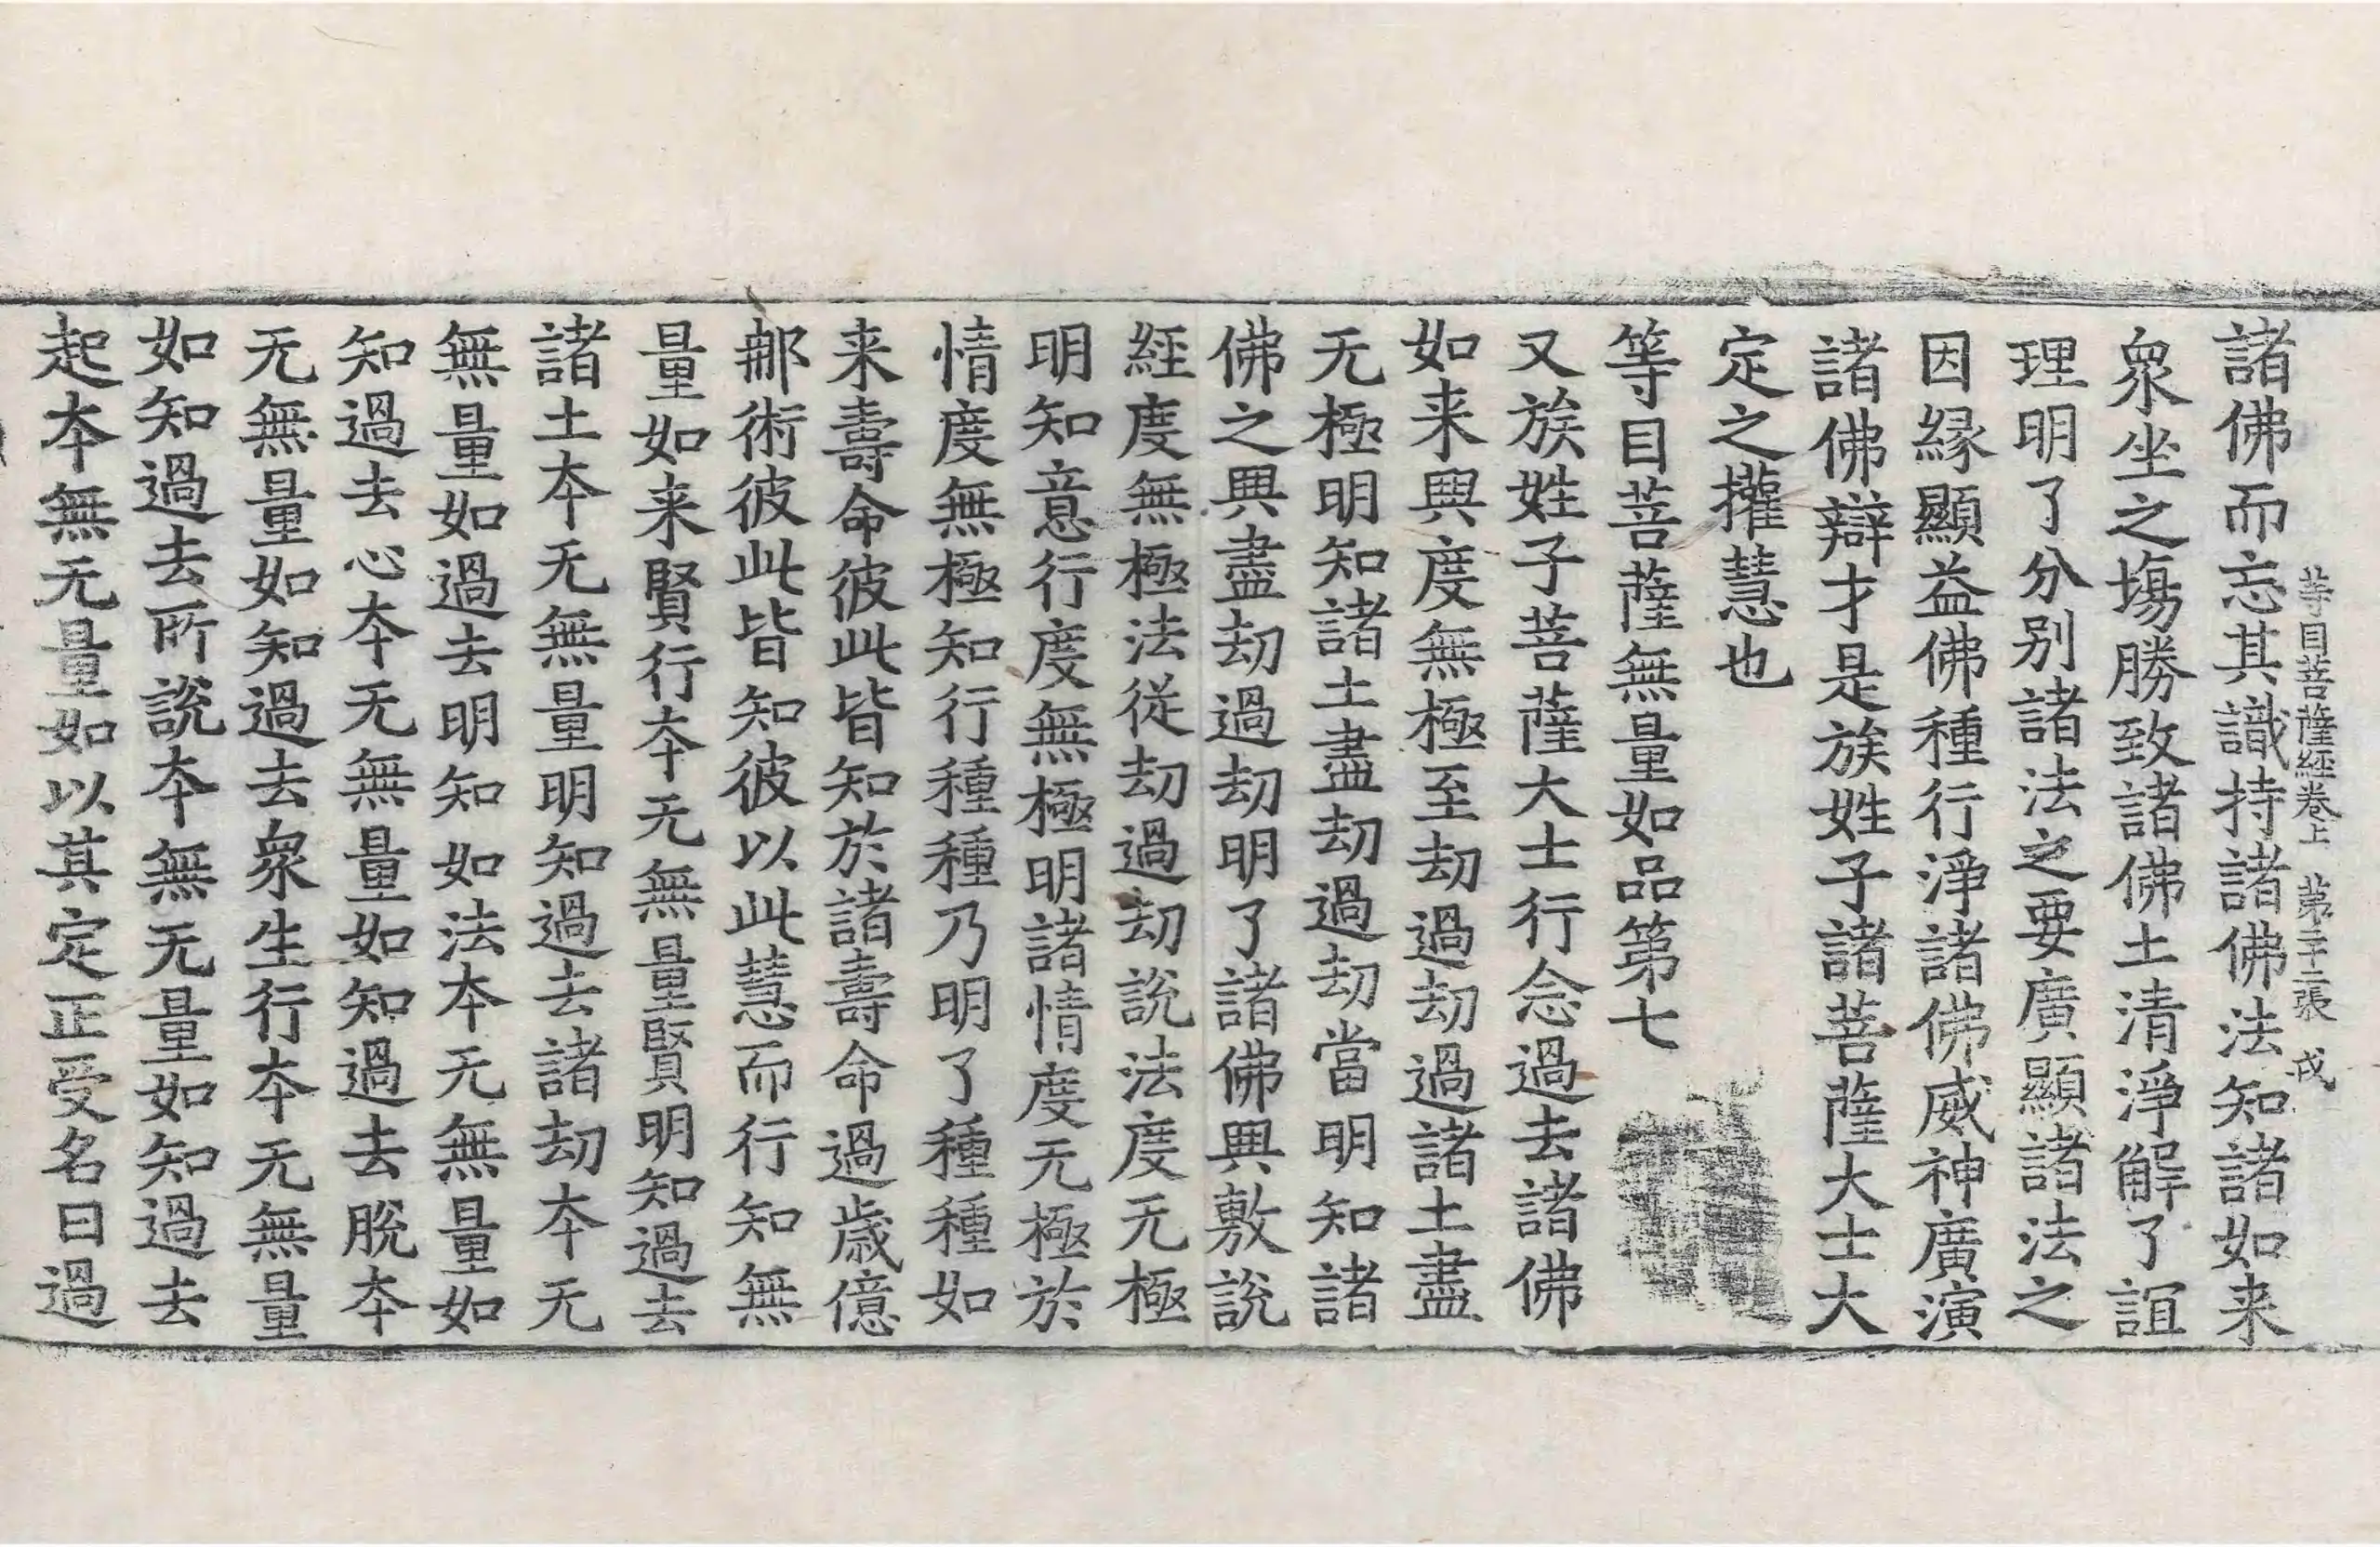 等目菩薩經卷上 第二十二張 戎
諸佛而忘其識持諸佛法知諸如来
衆坐之場勝致諸佛土清淨解了誼
理明了分別諸法之要廣顯諸法之
因縁顯益佛種行淨諸佛威神廣演
諸佛辯才是族姓子諸菩薩大士大
定之攉慧也
等目菩薩無量如品第七
又族姓子菩薩大士行念過去諸佛
如来興度無極至劫過劫過諸土盡
无極明知諸土盡劫過劫當明知諸
佛之興盡劫過劫明了諸佛興敷說
經度無極法從劫過劫說法度无極
明知意行度無極明諸情度无極於
情度無極知行種種乃明了種種如
来壽命彼此皆知於諸壽命過歲億
那術彼此皆知彼以此慧而行知無
量如来賢行本无無量賢明知過去
諸土本无無量明知過去諸劫本无
無量如過去明知如法本无無量如
知過去心本无無量如知過去脫本
无無量如知過去衆生行本无無量
如知過去所說本無无量如知過去
起本無无量如以其定正受名曰過